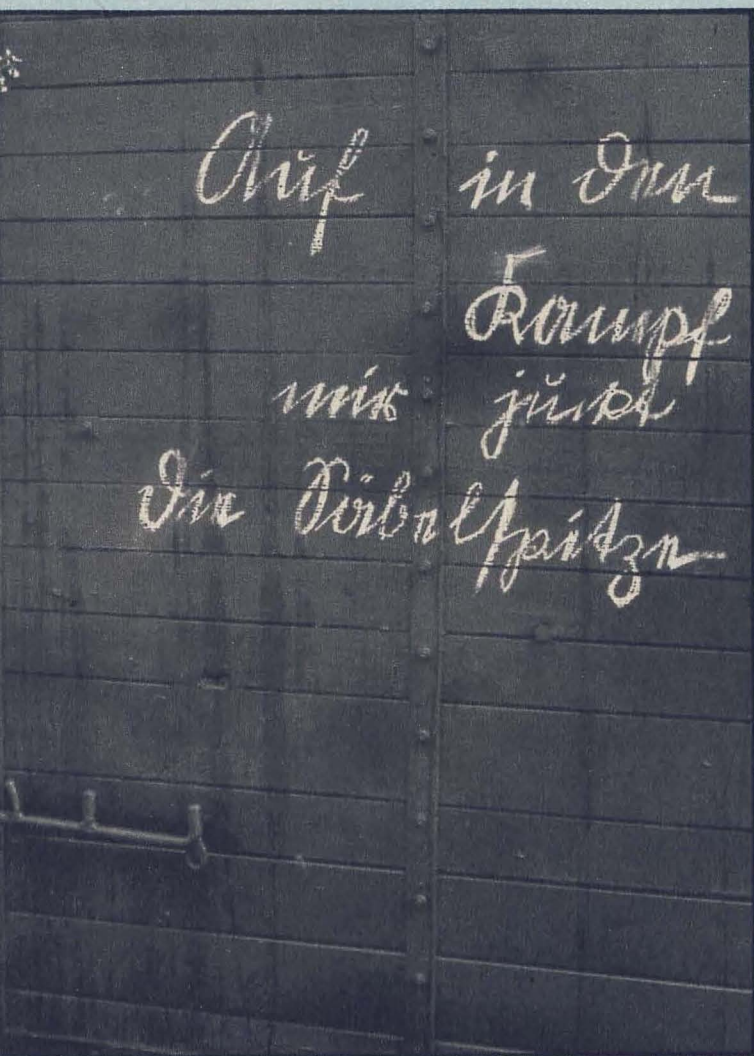 Auf in den
Kampf
mir juckt
die Säbelspitze